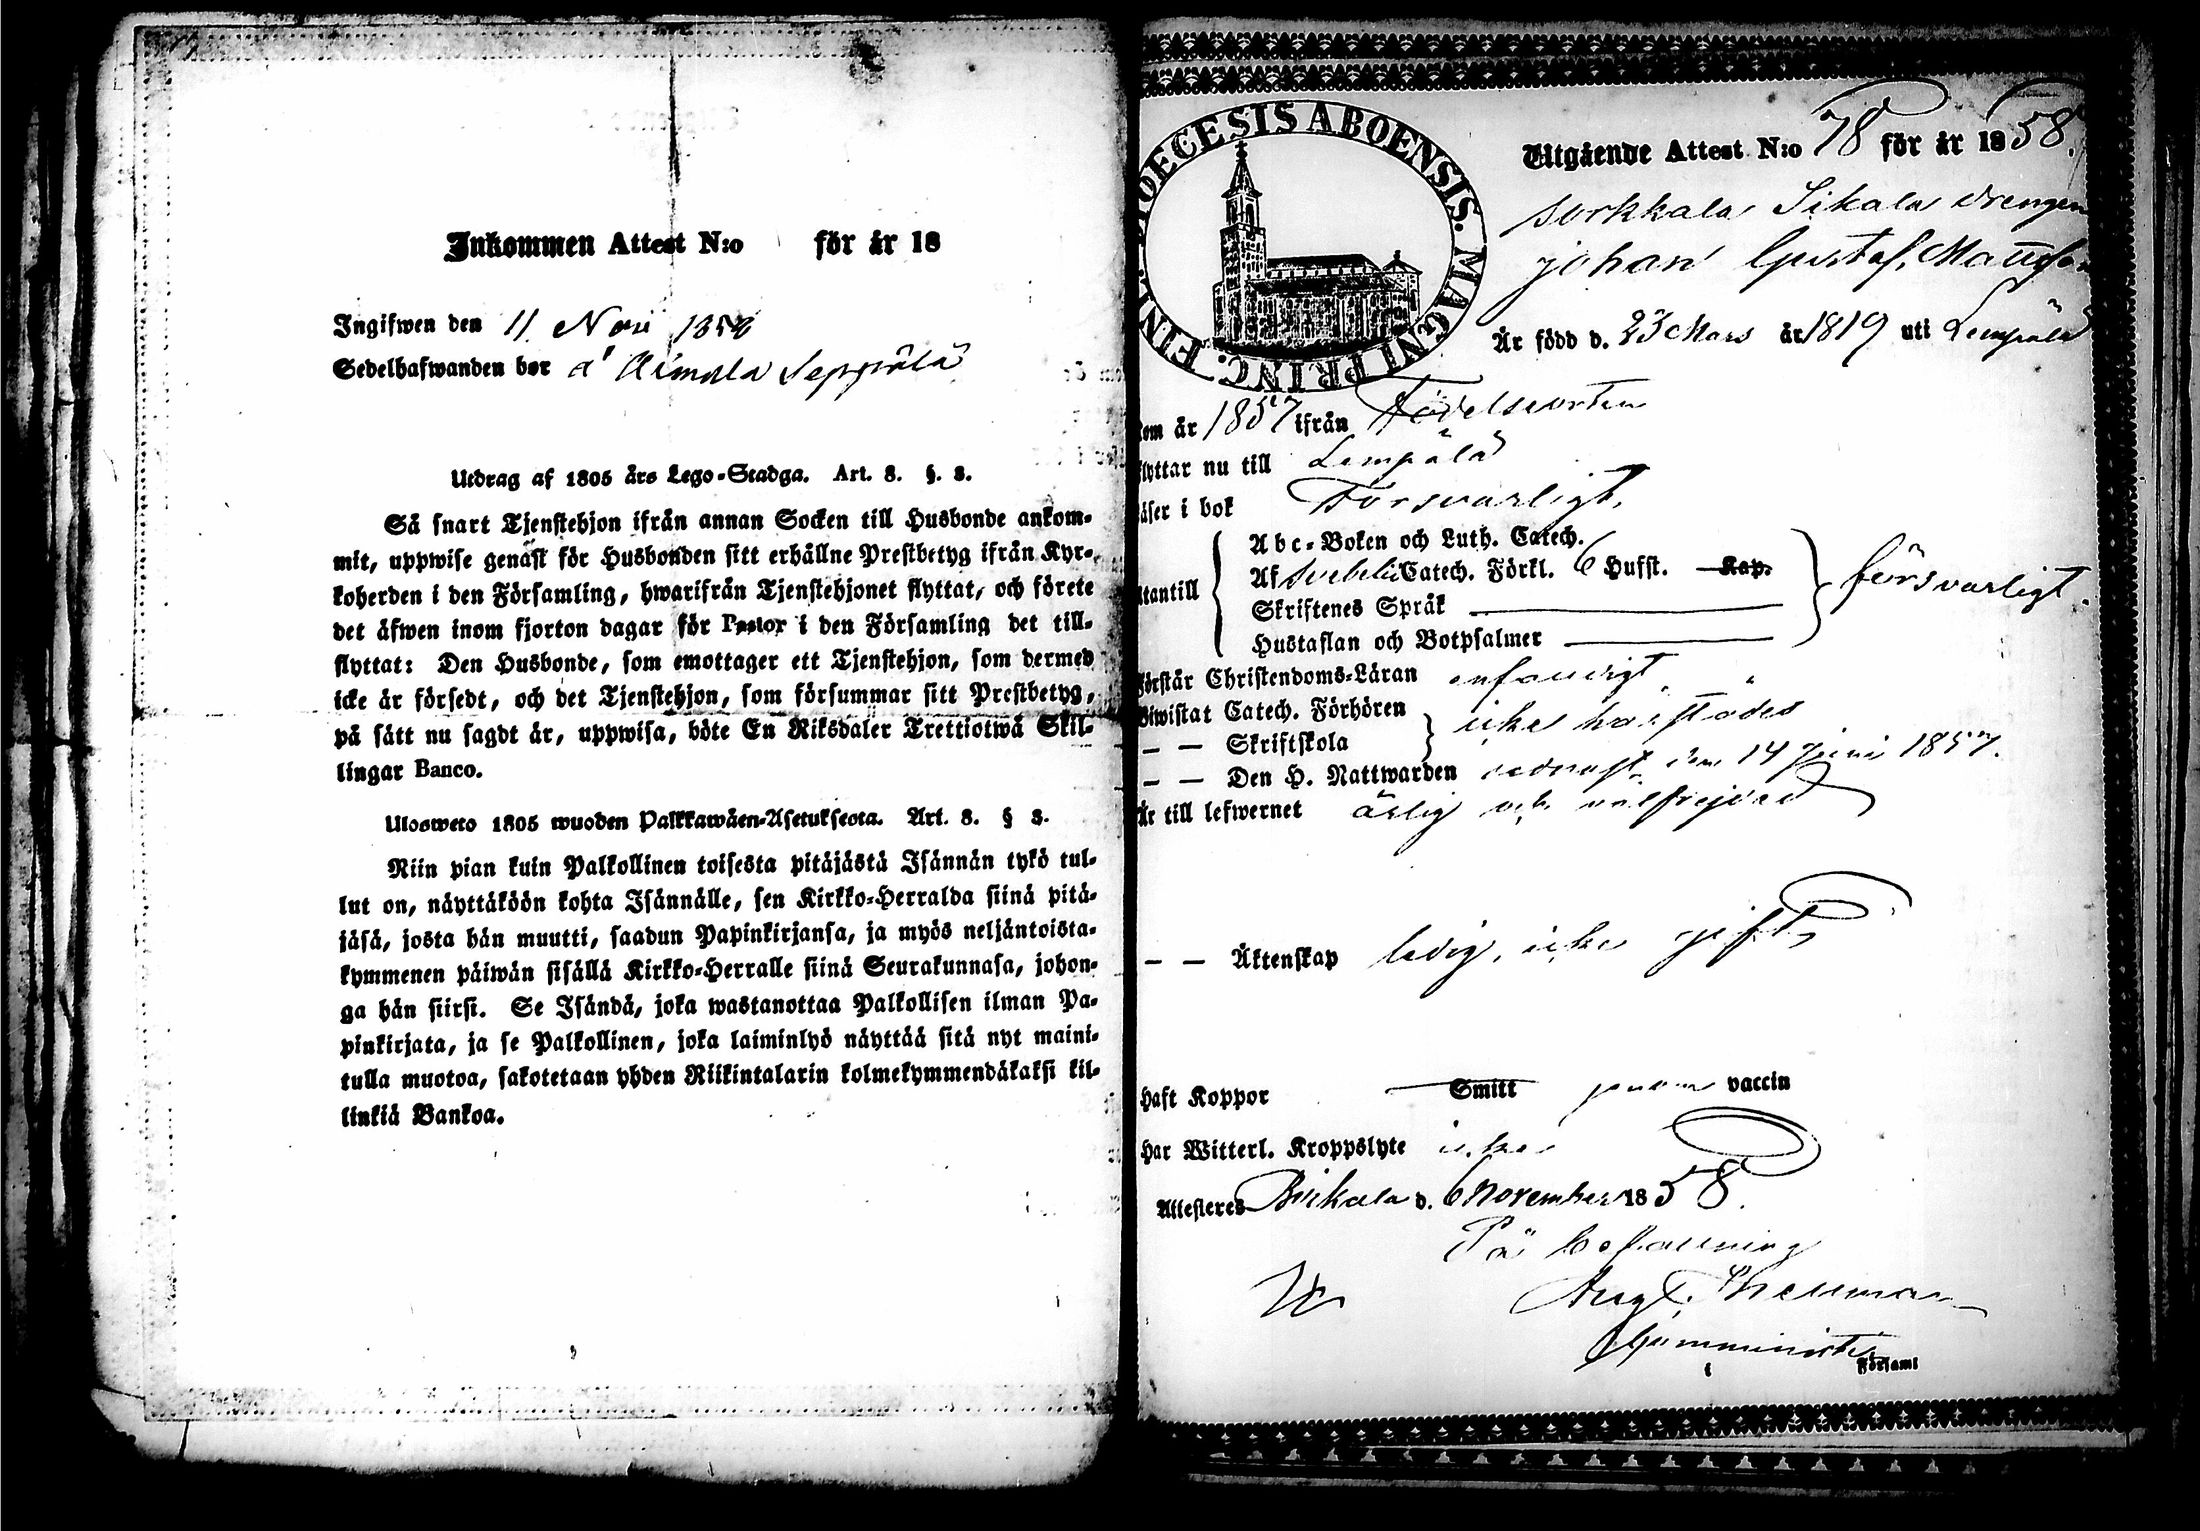 Inkommen Attest N:o för år 18
Ingifwen den 11 Nov 1858
Sedelhafwanden bor å Aimala Seppälä
Utdrag af 1805 års Lego-Stadga. Art. 8. §. 3.
Så snart Tjenstehjon ifrån annan Socken till Husbonde ankom-
mit, uppwise genast för Husbonden sitt erhållne Prestbetyg ifrån Kyr-
koherden i den Församling, hwarifrån Tjenstehjonet flyttat, och förete
det äfwen inom fjorton dagar för Pastor i den Församling det till-
flyttat: Den Husbonde, som emottager ett Tjenstehjon, som dermed
icke är försedt, och det Tjenstehjon, som försummar sitt Prestbetyg,
på sätt nu sagdt är, uppwisa, böte En Riksdaler Trettiotwå Skil-
lingar Banco.
Ulosweto 1805 wuoden Palkkawäen-Asetuksesta. Art. 8. § 3.
Niin pian kuin Palkollinen toisesta pitäjästä Isännän tykö tul-
lut on, näyttäköön kohta Isännälle, sen Kirkko-Herralda siinä pitä-
jäsä, josta hän muutti, saadun Papinkirjansa, ja myös neljäntoista-
kymmenen päiwän sisällä Kirkko-Herralle siinä Seurakunnasa, johon-
ga hän siirsi. Se Isändä, joka wastanottaa Palkollisen ilman Pa-
pinkirjata, ja se Palkollinen, joka laiminlyö näyttää sitä nyt maini-
tulla muotoa, sakotetaan yhden Riikintalarin kolmekymmendäkaksi kil-
linkiä Bankoa.
DIOECESIS ABOENSIS. MAGNI PRINC. FINL.
Utgående Attest N:o 78 för år 1858.
Sorkkala Sikala drengen
Johan Gustaf Mattsson
Är född d. 23 Mars år 1819 uti Lempälä
kom år 1857 ifrån Födelseorten
flyttar nu till Lempälä
läser i bok Försvarligt,
Abc-Boken och Luth. Catech.
utantill Af Svebelii Catech. Förkl. 6 Hufst. Kap. försvarligt.
Skriftenes Språk
Hustaflan och Botpsalmer
Förstår Christendoms-Läran enfaldigt
Biwistat Catech. Förhören icke härstädes
— — Skriftskola
— — Den H. Nattwarden sednast den 14 Juni 1857.
Är till lefwernet ärlig och välfrejdad
— — Äktenskap ledig, icke gift,
Haft Koppor Smitt genom vaccin
Har Witterl. Kroppslyte icke
Attesteres Birkala d. 6 November 1858.
På befallning
Aug.
Comminister
i Församl